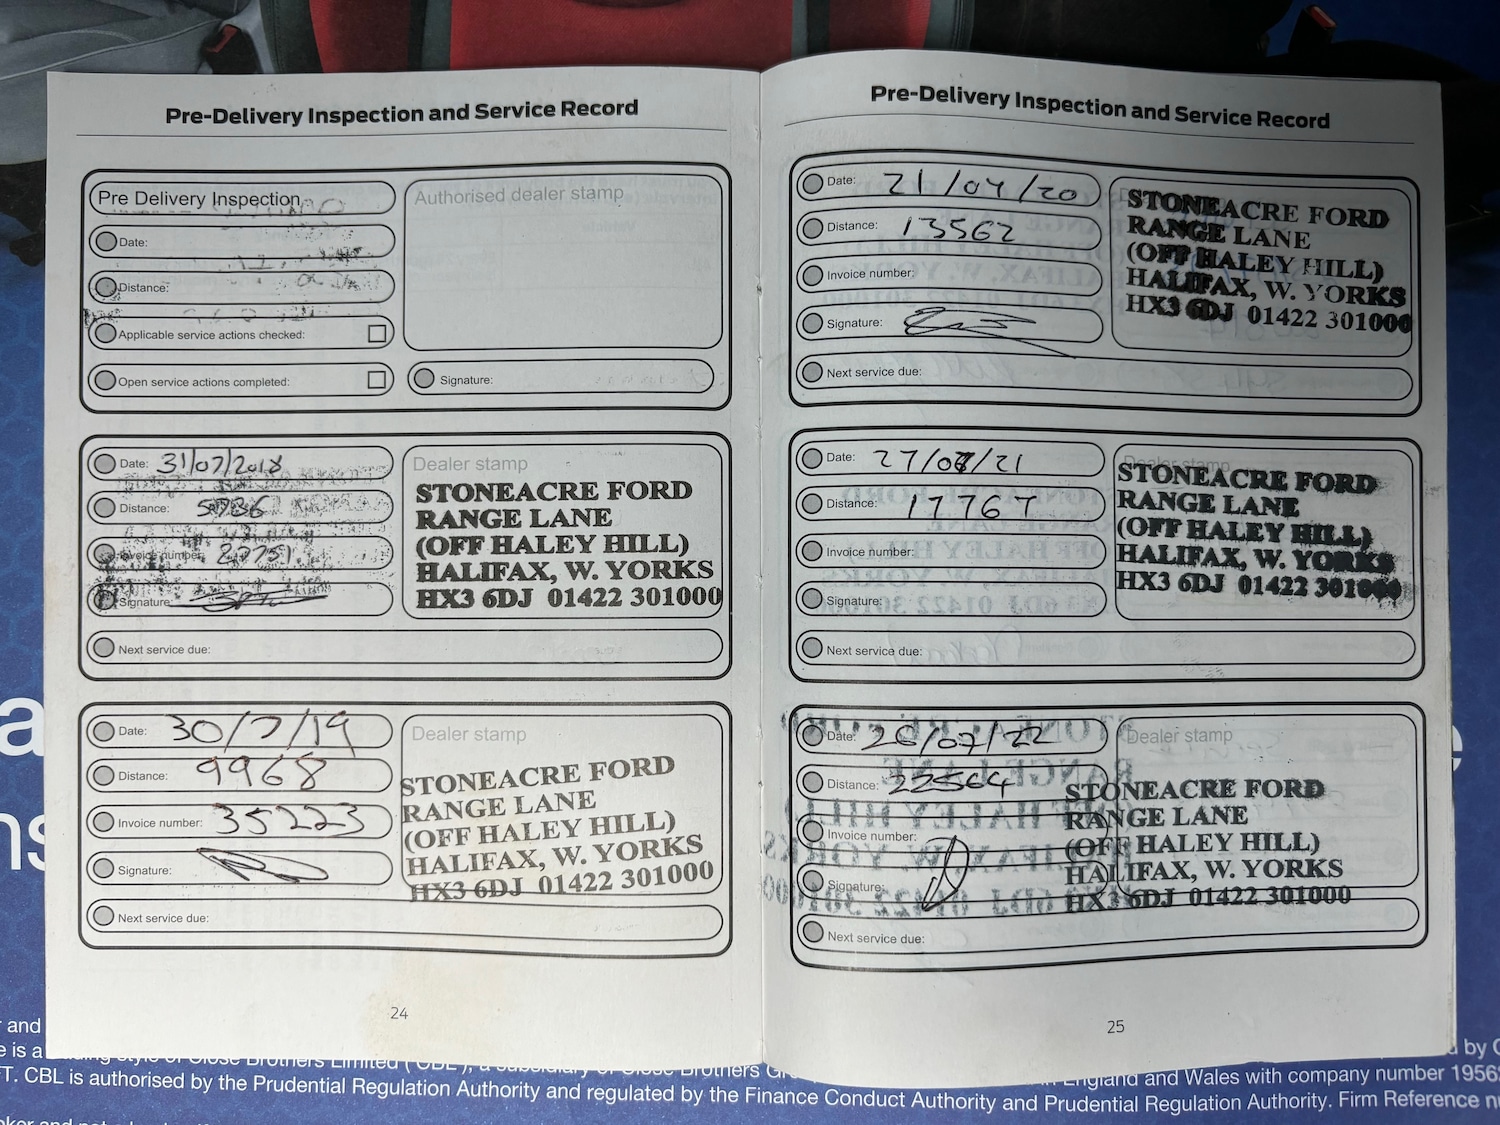 Pre-Delivery Inspection and Service Record
Pre Delivery Inspection
Date:
Distance:
Applicable service actions checked:
Open service actions completed:
Authorised dealer stamp
Signature:
Date: 31/07/2018
Distance:
Invoice number:
Signature:
Next service due:
Dealer stamp
STONEACRE FORD
RANGE LANE
(OFF HALEY HILL)
HALIFAX, W. YORKS
HX3 6DJ 01422 301000
Date: 30/7/19
Distance: 9968
Invoice number: 35223
Signature:
Next service due:
Dealer stamp
STONEACRE FORD
RANGE LANE
(OFF HALEY HILL)
HALIFAX, W. YORKS
HX3 6DJ 01422 301000
24
Pre-Delivery Inspection and Service Record
Date: 21/07/20
Distance: 13562
Invoice number:
Signature:
Next service due:
STONEACRE FORD
RANGE LANE
(OFF HALEY HILL)
HALIFAX, W. YORKS
HX3 6DJ 01422 301000
Date: 27/07/21
Distance: 17767
Invoice number:
Signature:
Next service due:
Dealer stamp
STONEACRE FORD
RANGE LANE
(OFF HALEY HILL)
HALIFAX, W. YORKS
HX3 6DJ 01422 301000
Date: 26/07/22
Distance: 22564
Invoice number:
Signature:
Next service due:
Dealer stamp
STONEACRE FORD
RANGE LANE
(OFF HALEY HILL)
HALIFAX, W. YORKS
HX3 6DJ 01422 301000
25
and
England and Wales with company number
T. CBL is authorised by the Prudential Regulation Authority and regulated by the Finance Conduct Authority and Prudential Regulation Authority. Firm Reference